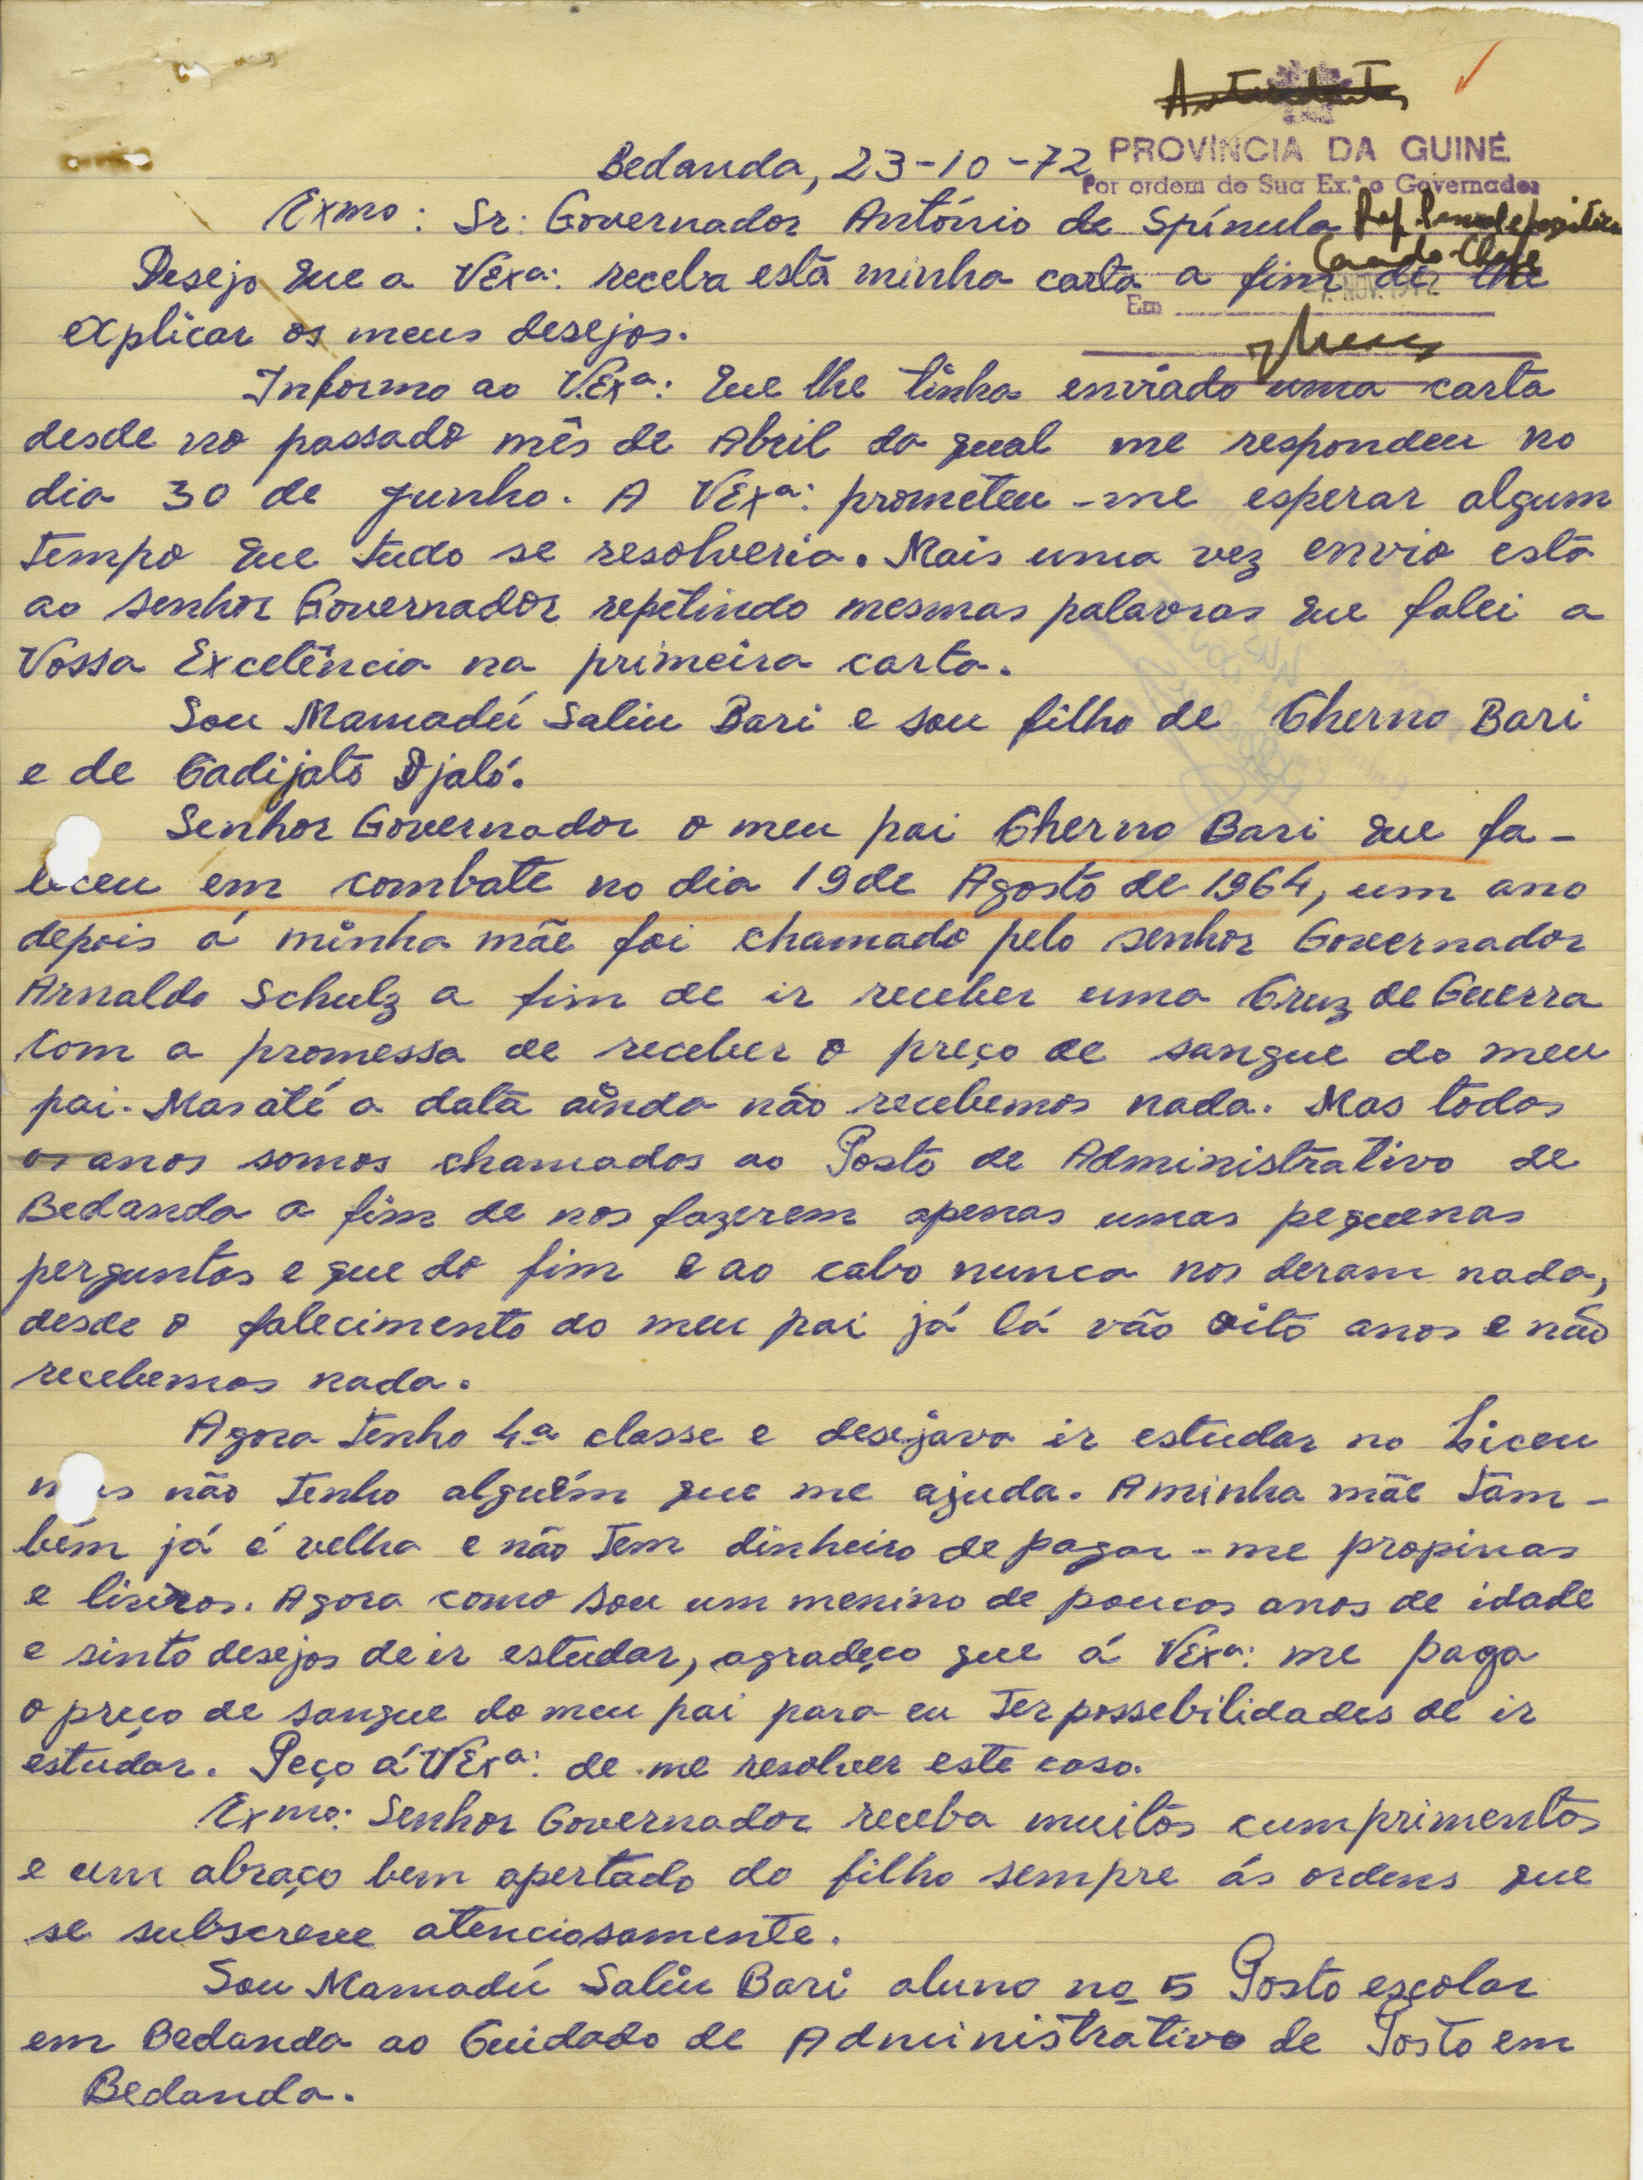 Antecedentes
PROVÍNCIA DA GUINÉ
Bedanda, 23-10-72
Por ordem de Sua Ex.ª o Governador
Exmo: Sr: Governador António de Spínula
Desejo que a VExa: receba esta minha carta a fim de lhe
Em
7. NOV. 1972
explicar os meus desejos.
Informo ao V.Exa: que lhe tinha enviado uma carta
desde no passado mês de Abril da qual me respondeu no
dia 30 de Junho. A VExa: prometeu-me esperar algum
tempo que tudo se resolveria. Mais uma vez envio esta
ao senhor Governador repetindo mesmas palavras que falei a
Vossa Excelência na primeira carta.
Sou Mamadú Saliu Bari e sou filho de Cherno Bari
e de Cadijato Djaló.
Senhor Governador o meu pai Cherno Bari que fa-
leceu em combate no dia 19 de Agosto de 1964, um ano
depois á minha mãe foi chamado pelo senhor Governador
Arnaldo Schulz a fim de ir receber uma Cruz de Guerra
com a promessa de receber o preço de sangue do meu
pai. Mas até a data ainda não recebemos nada. Mas todos
os anos somos chamados ao Posto de Administrativo de
Bedanda a fim de nos fazerem apenas umas pequenas
perguntas e que do fim e ao cabo nunca nos deram nada,
desde o falecimento do meu pai já lá vão oito anos e não
recebemos nada.
Agora tenho 4a classe e desejava ir estudar no Liceu
mas não tenho alguém que me ajuda. A minha mãe tam-
bém já é velha e não tem dinheiro de pagar-me propinas
e livros. Agora como sou um menino de poucos anos de idade
e sinto desejos de ir estudar, agradeço que á VExa: me paga
o preço de sangue do meu pai para eu ter possebilidades de ir
estudar. Peço á VExa: de me resolver este caso.
Exmo: Senhor Governador receba muitos cumprimentos
e um abraço bem apertado do filho sempre ás ordens que
se subscreve atenciosamente.
Sou Mamadú Saliu Bari aluno no 5 Posto escolar
em Bedanda ao Cuidado de Administrativo de Posto em
Bedanda.